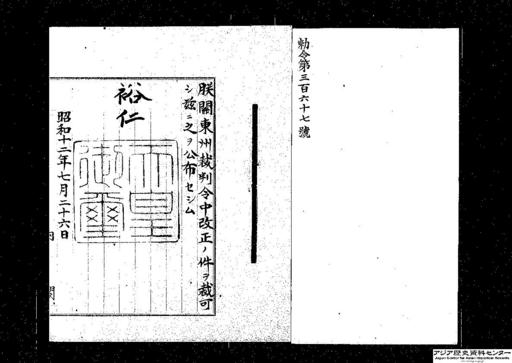 勅令第三百六十七號
朕關東州裁判令中改正ノ件ヲ裁可
シ茲ニ之ヲ公布セシム
裕仁
天皇御璽
昭和十二年七月二十六日
内閣
アジア歴史資料センター
Japan Center for Asian Historical Records